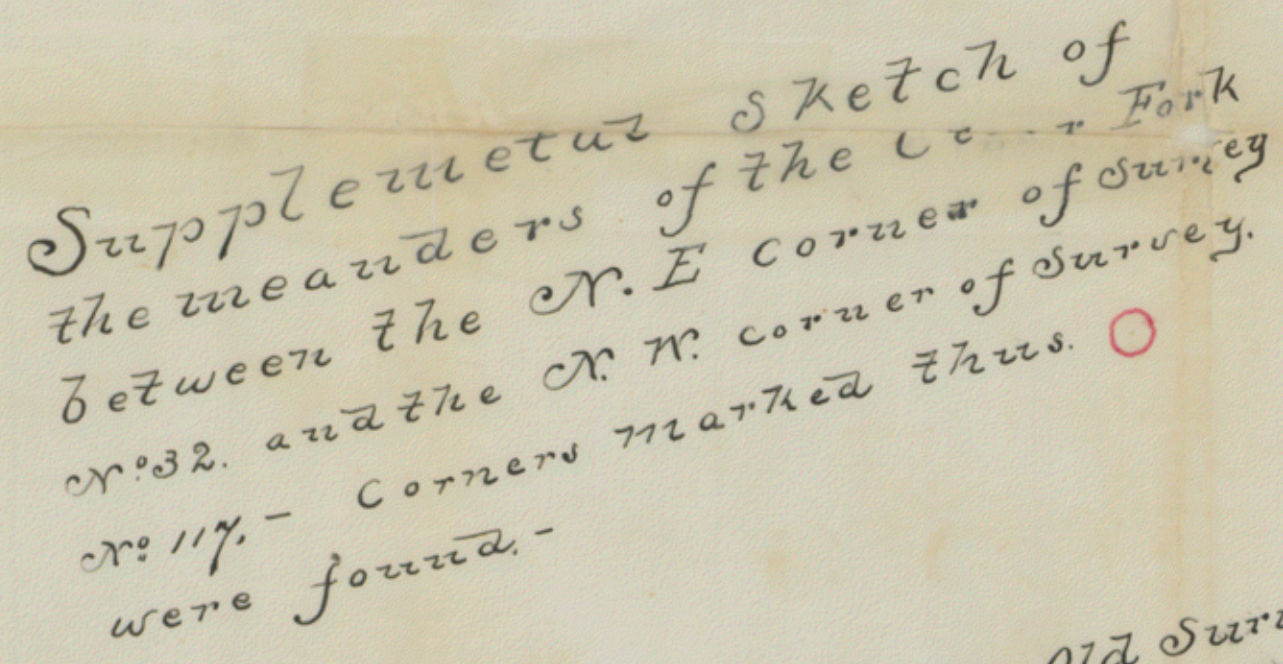 Supplemetal Sketch of
the meanders of the Fork
between the N. E Corner of Survey
No. 32. and the N. W. corner of Survey.
No. 117. – Corners marked thus. O
were found. –
Old